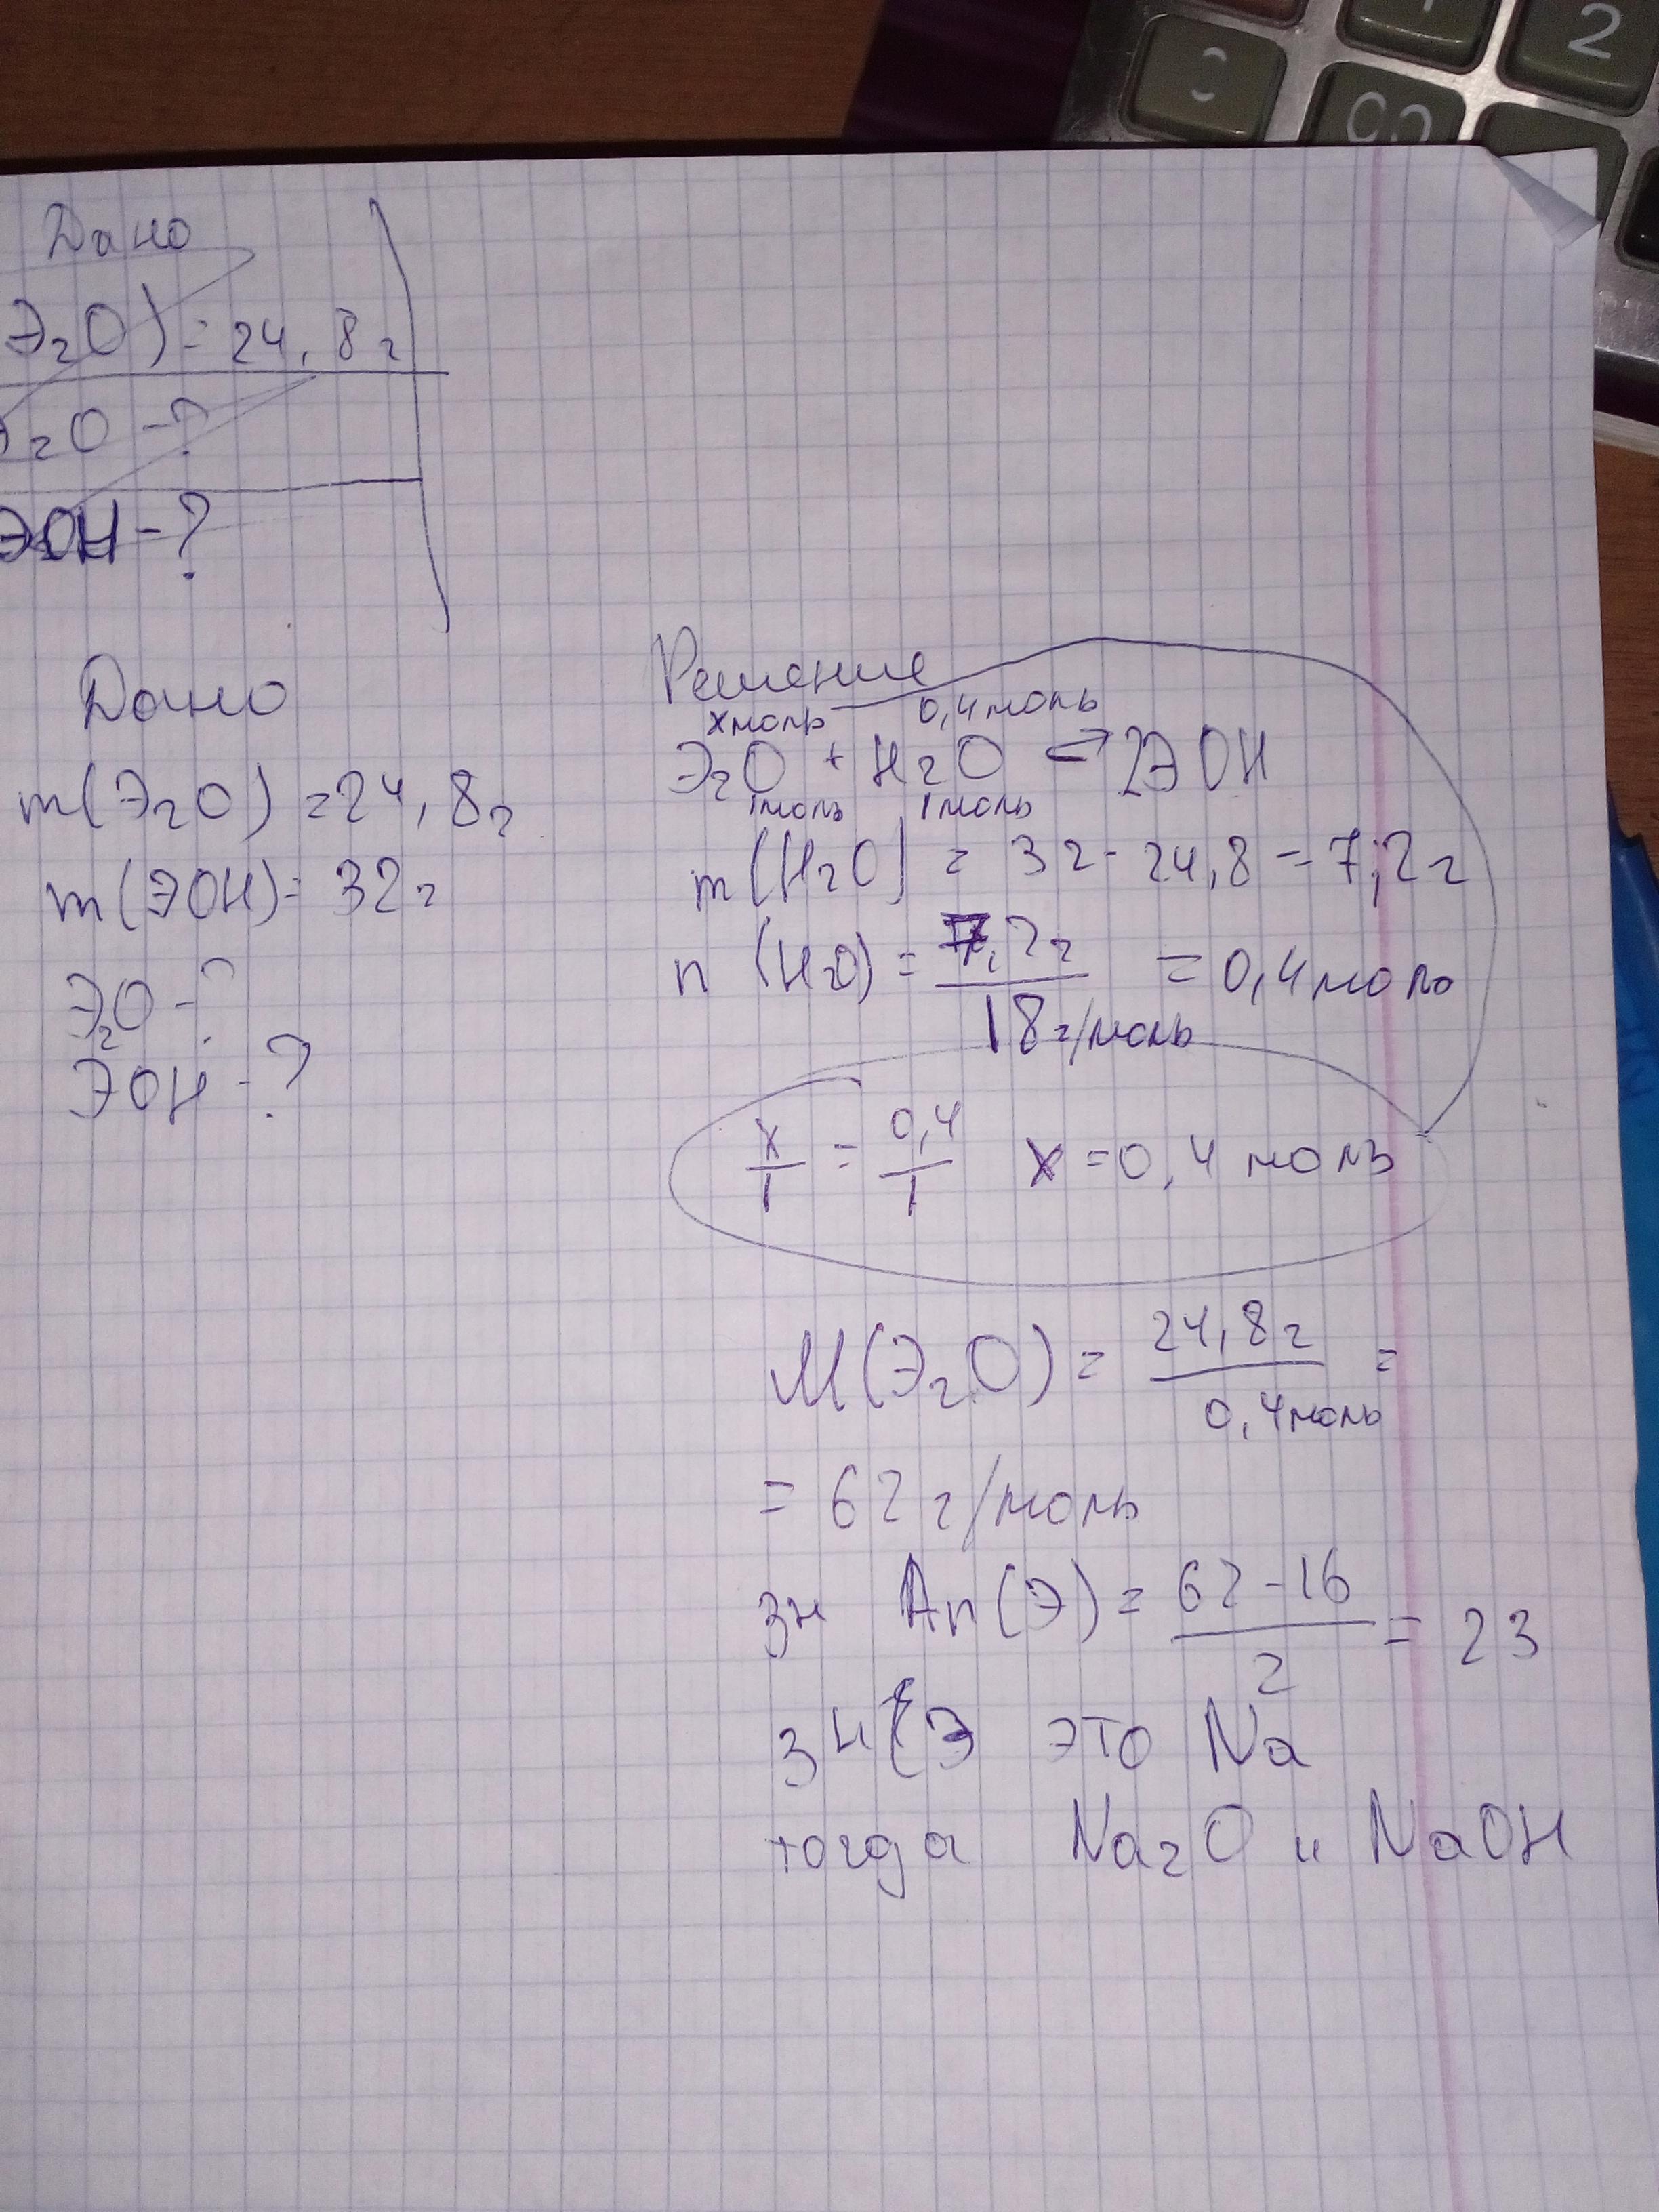 2
Дано
Э₂О) = 24,8г
Э₂О - ?
ЭОН - ?
Дано
m(Э₂О) = 24,8г
m(ЭОН) = 32г
Э₂О - ?
ЭОН - ?
Решение
х моль 0,4 моль
Э₂О + Н₂О → 2ЭОН
1 моль 1 моль
m(Н₂О) = 32 - 24,8 = 7,2г
n (Н₂О) = 7,2г / 18г/моль = 0,4 моль
х/1 = 0,4/1 х = 0,4 моль
М(Э₂О) = 24,8г / 0,4 моль =
= 62 г/моль
зн Аr(Э) = 62-16 / 2 = 23
зн Э это Na
тогда Na₂O и NaOH